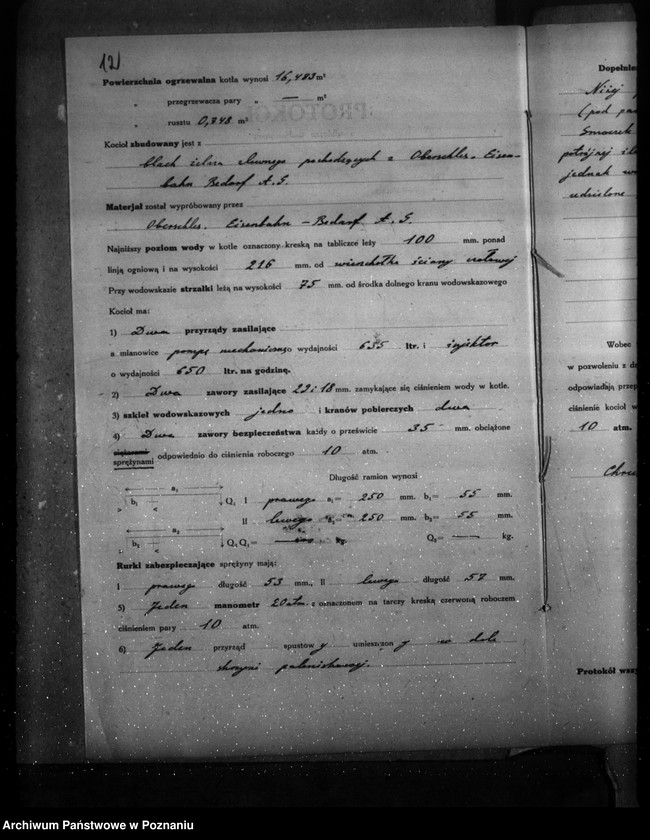 12
Powierzchnia ogrzewalna kotła wynosi 16,483 m²
„ przegrzewacza pary „ — m²
„ rusztu 0,748 m²
Kocioł zbudowany jest z
blach żelaza zlewnego pochodzących z Oberschles. Eisen-
bahn Bedarf A. G.
Materjał został wypróbowany przez
Oberschles. Eisenbahn - Bedarf A. G.
Najniższy poziom wody w kotle oznaczony kreską na tabliczce leży 100 mm. ponad
linją ogniową i na wysokości 216 mm. od wierzchołka ściany
Przy wodowskazie strzałki leżą na wysokości 75 mm. od środka dolnego kranu wodowskazowego
Kocioł ma:
1) Dwa przyrządy zasilające
a mianowice pompę mechaniczną o wydajności 635 ltr. i injektor
o wydajności 650 ltr. na godzinę.
2) Dwa zawory zasilające 23 i 18 mm. zamykające się ciśnieniem wody w kotle.
3) szkieł wodowskazowych jedno i kranów pobierczych dwa
4) Dwa zawory bezpieczeństwa każdy o prześwicie 35 mm. obciążone
ciężarami
sprężynami odpowiednio do ciśnienia roboczego 10 atm.
Długość ramion wynosi
a₁ b₁ Q₁ I prawego a₁= 250 mm. b₁= 55 mm.
II lewego a₂= 250 mm. b₂= 55 mm.
a₂ b₂ Q₂ Q₁= kg. Q₂= — kg.
Rurki zabezpieczające sprężyny mają:
I prawego długość 53 mm., II lewego długość 57 mm.
5) Jeden manometr 20 atm z oznaczonem na tarczy kreską czerwoną roboczem
ciśnieniem pary 10 atm.
6) Jeden przyrząd spustowy umieszczony w dole
skrzyni paleniskowej.
Dopełnie
Niżej
(pod pa
Smoczek
potrójnej
jednak
udzielone
Wobec
w pozwoleniu z d
odpowiadają przep
ciśnienie kocioł w
10 atm.
Protokół wszy
Archiwum Państwowe w Poznaniu